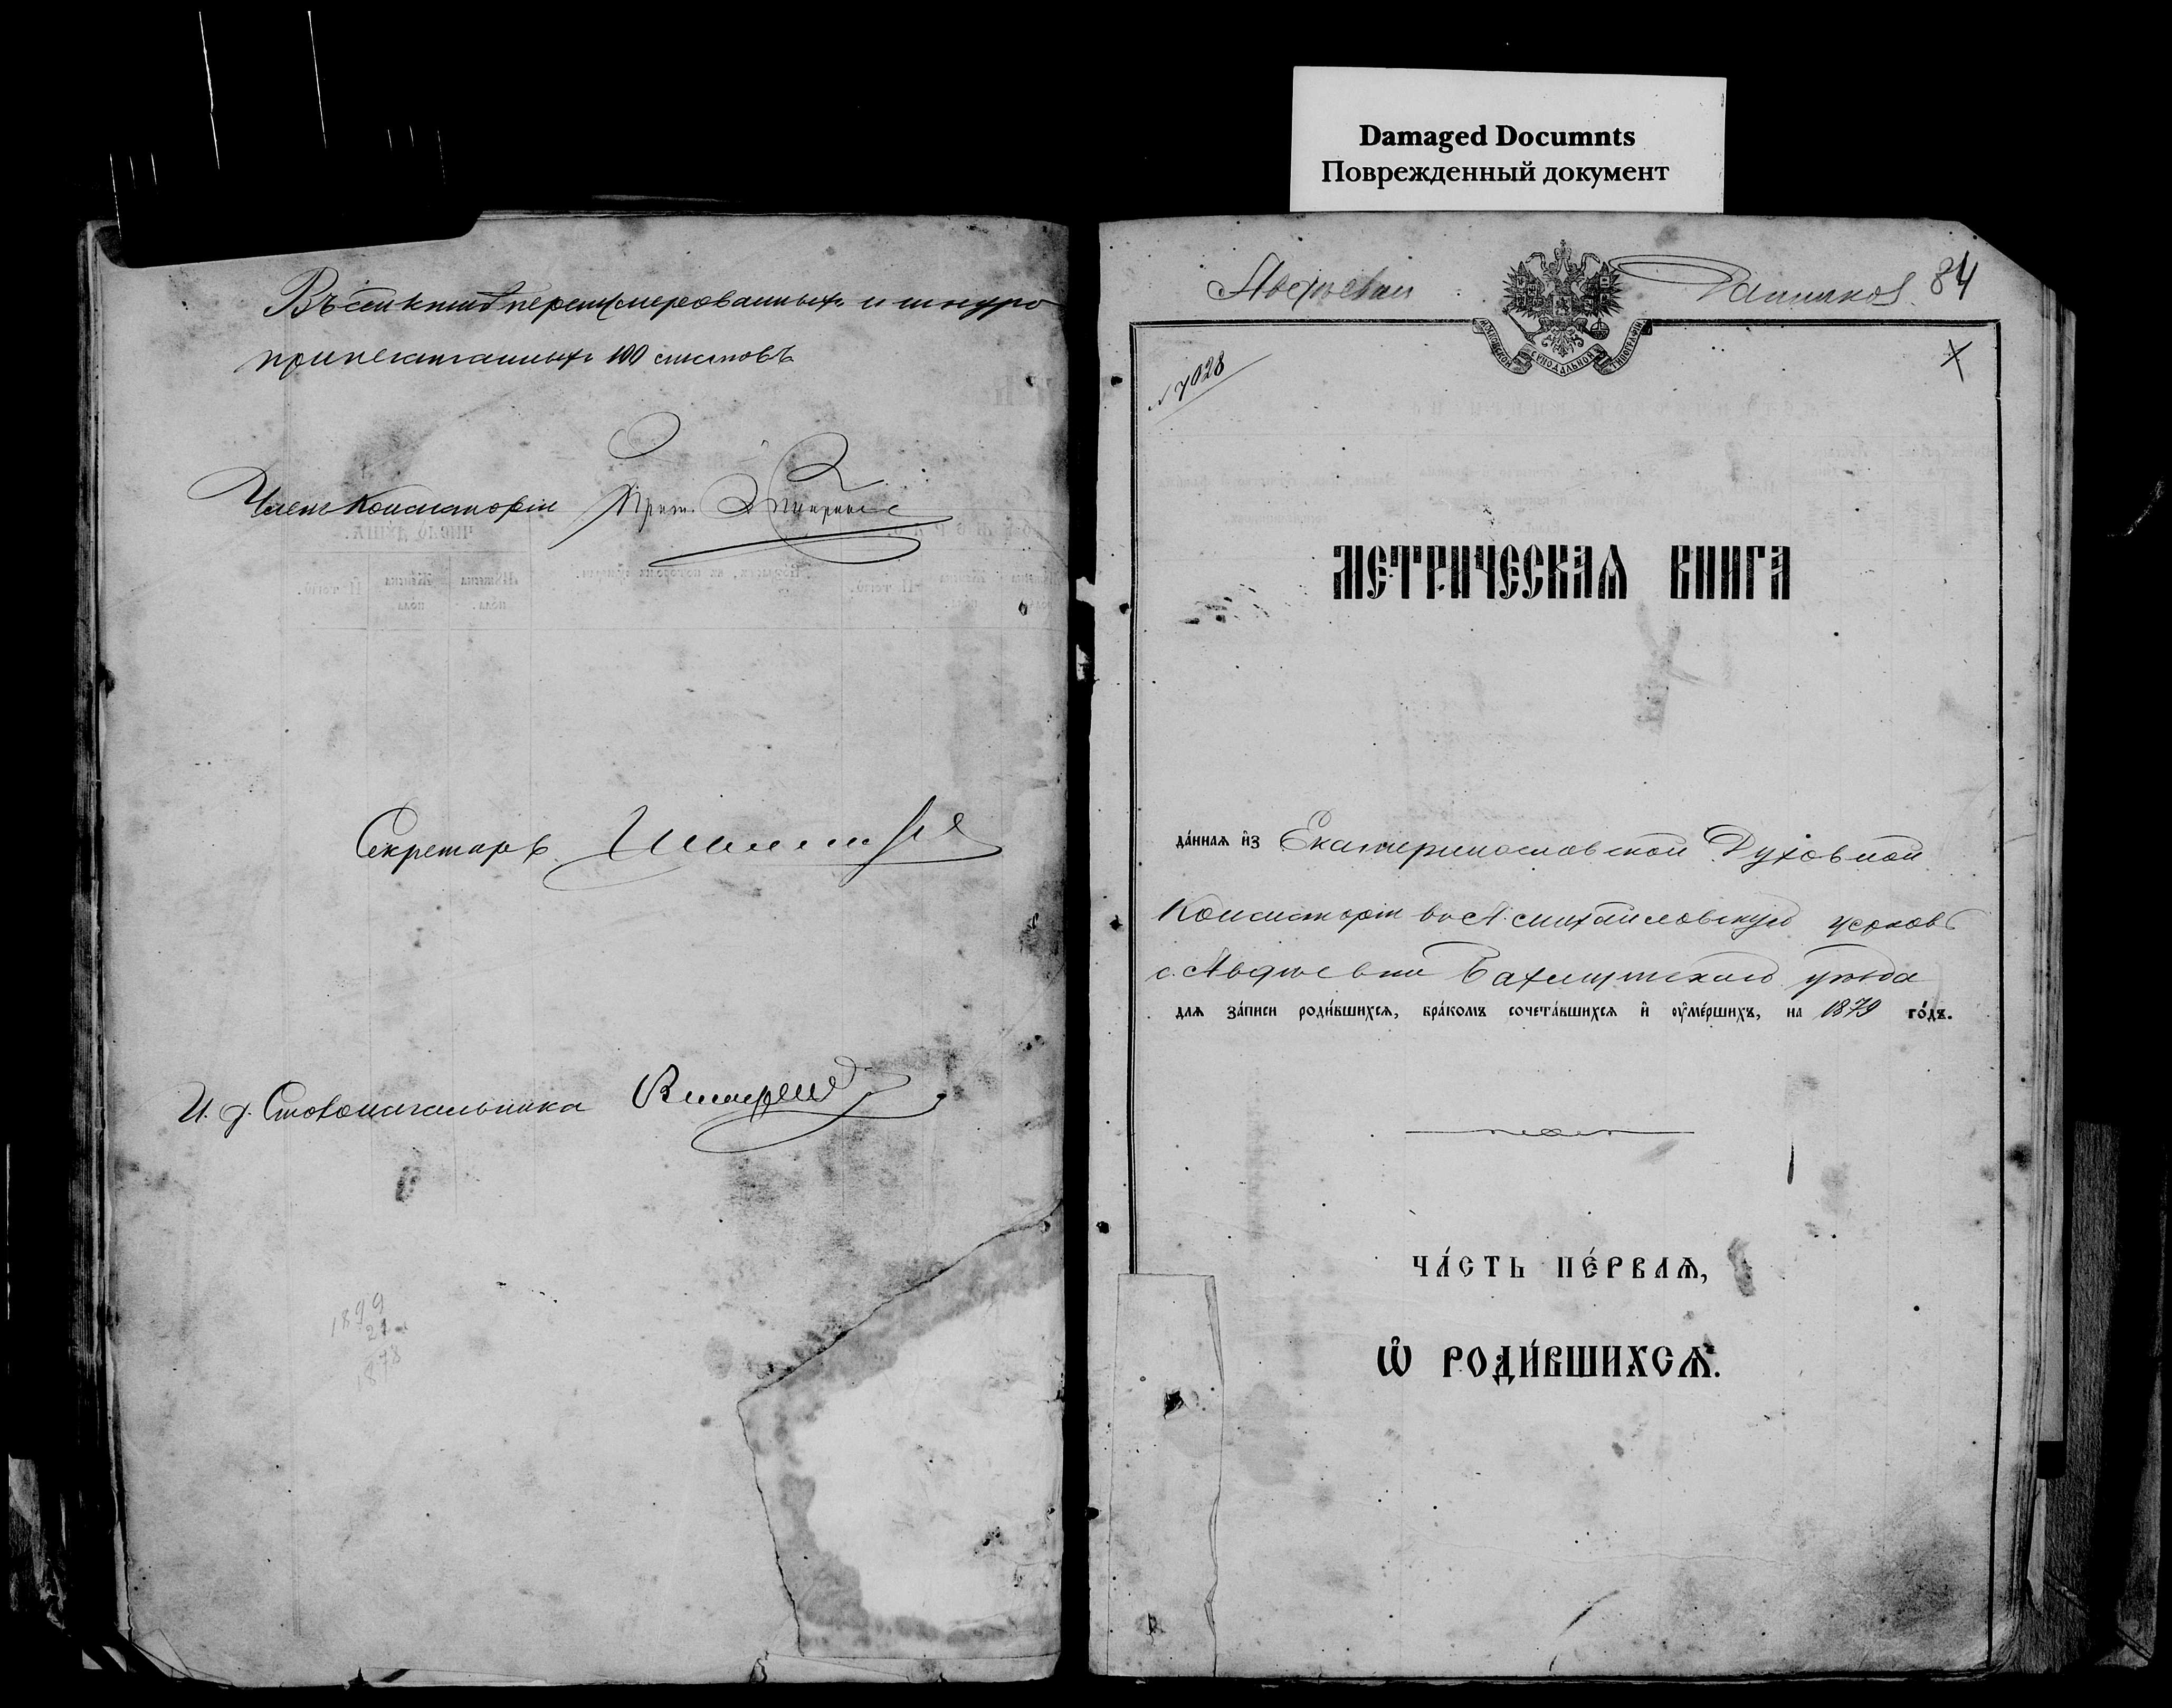 Damaged Documnts
Поврежденный документ
Въ сей книгѣ перенумерованныхъ и шнуро
припечатанныхъ 100 листовъ
Членъ Консисторіи Прот.
Секретарь
И. д. Столоначальника
1899
21
1878
84
МОСКОВСКОЙ СѴНОДАЛЬНОЙ ТИПОГРАФІИ
№ 7028
МЕТРИЧЕСКАѦ КНИГА
да́ннаѧ и҆з Екатеринославской Духовной
Консисторіи въ А. Михайловскую церковь
с. Авдѣевки Бахмутскаго уѣзда
длѧ за́писи роди́вшихсѧ, бра́комъ сочета́вшихсѧ и҆ оу҆ме́ршихъ, на 1879 го́дъ.
ЧА́СТЬ ПЕ́РВАѦ,
Ѽ РОДИ́ВШИХСѦ.